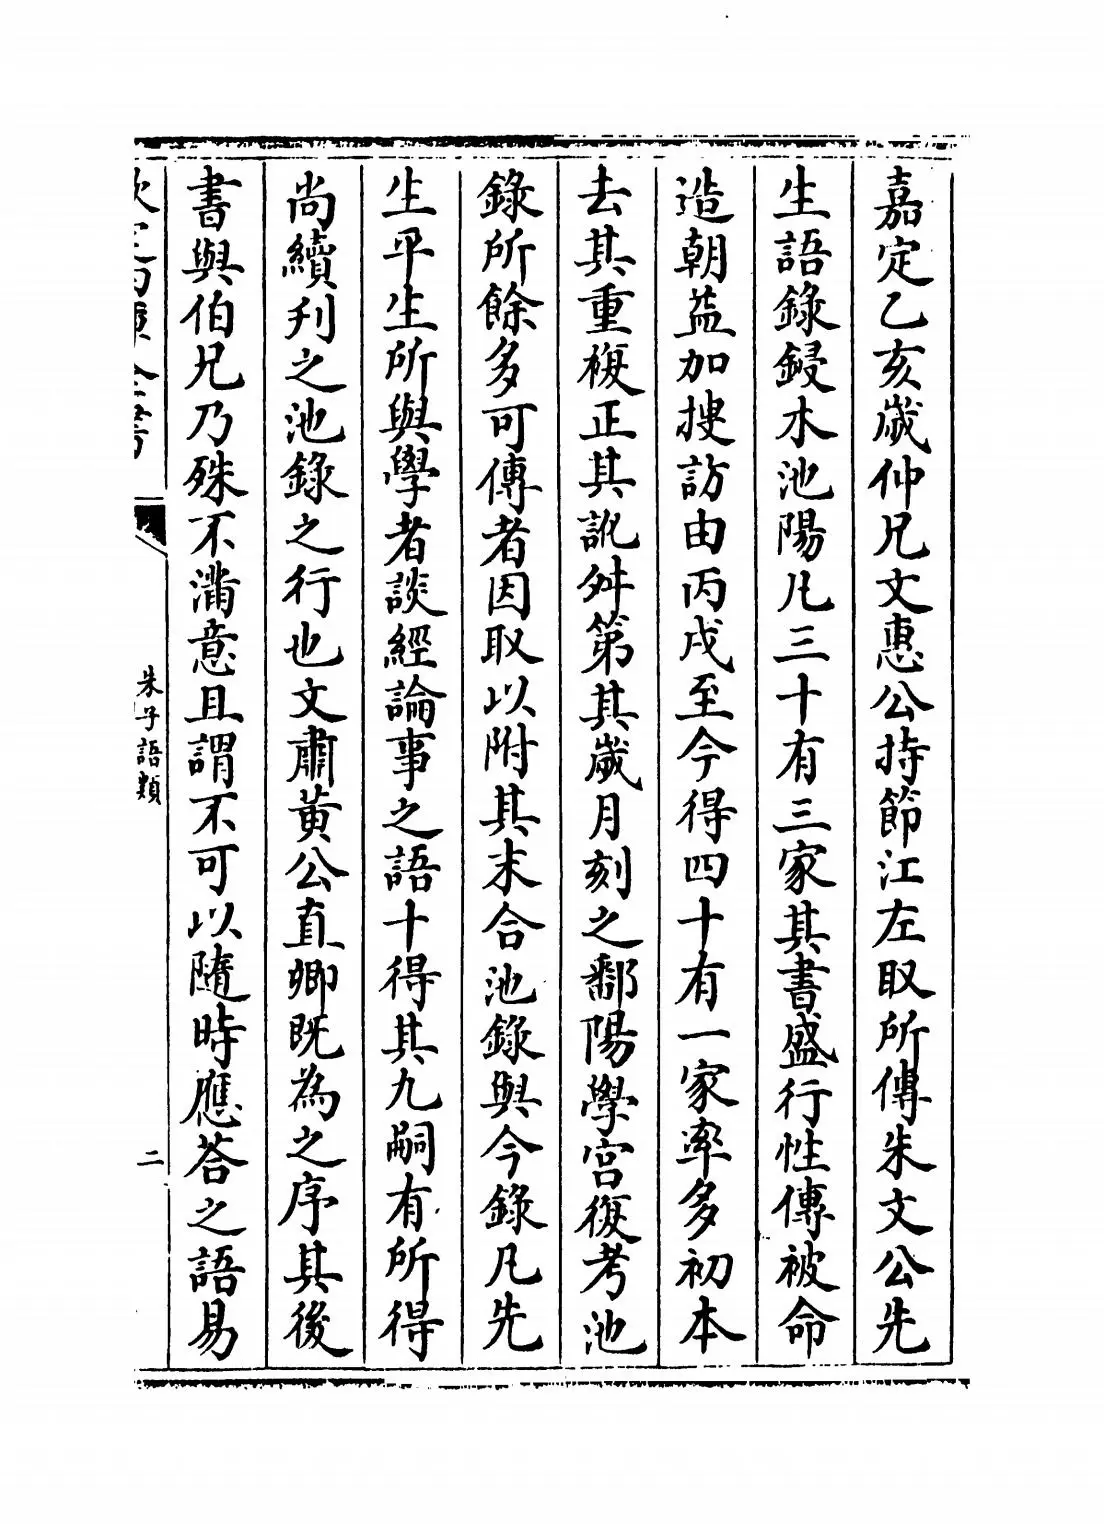 嘉定乙亥歲仲兄文惠公持節江左取所傳朱文公先
生語錄鋟木池陽凡三十有三家其書盛行性傳被命
造朝益加搜訪由丙戌至今得四十有一家率多初本
去其重複正其訛舛第其歲月刻之鄱陽學宮復考池
錄所餘多可傳者因取以附其末合池錄與今錄凡先
生平生所與學者談經論事之語十得其九嗣有所得
尚續刋之池錄之行也文肅黄公直卿既為之序其後
書與伯兄乃殊不滿意且謂不可以隨時應答之語易
欽定四庫全書
朱子語類
二